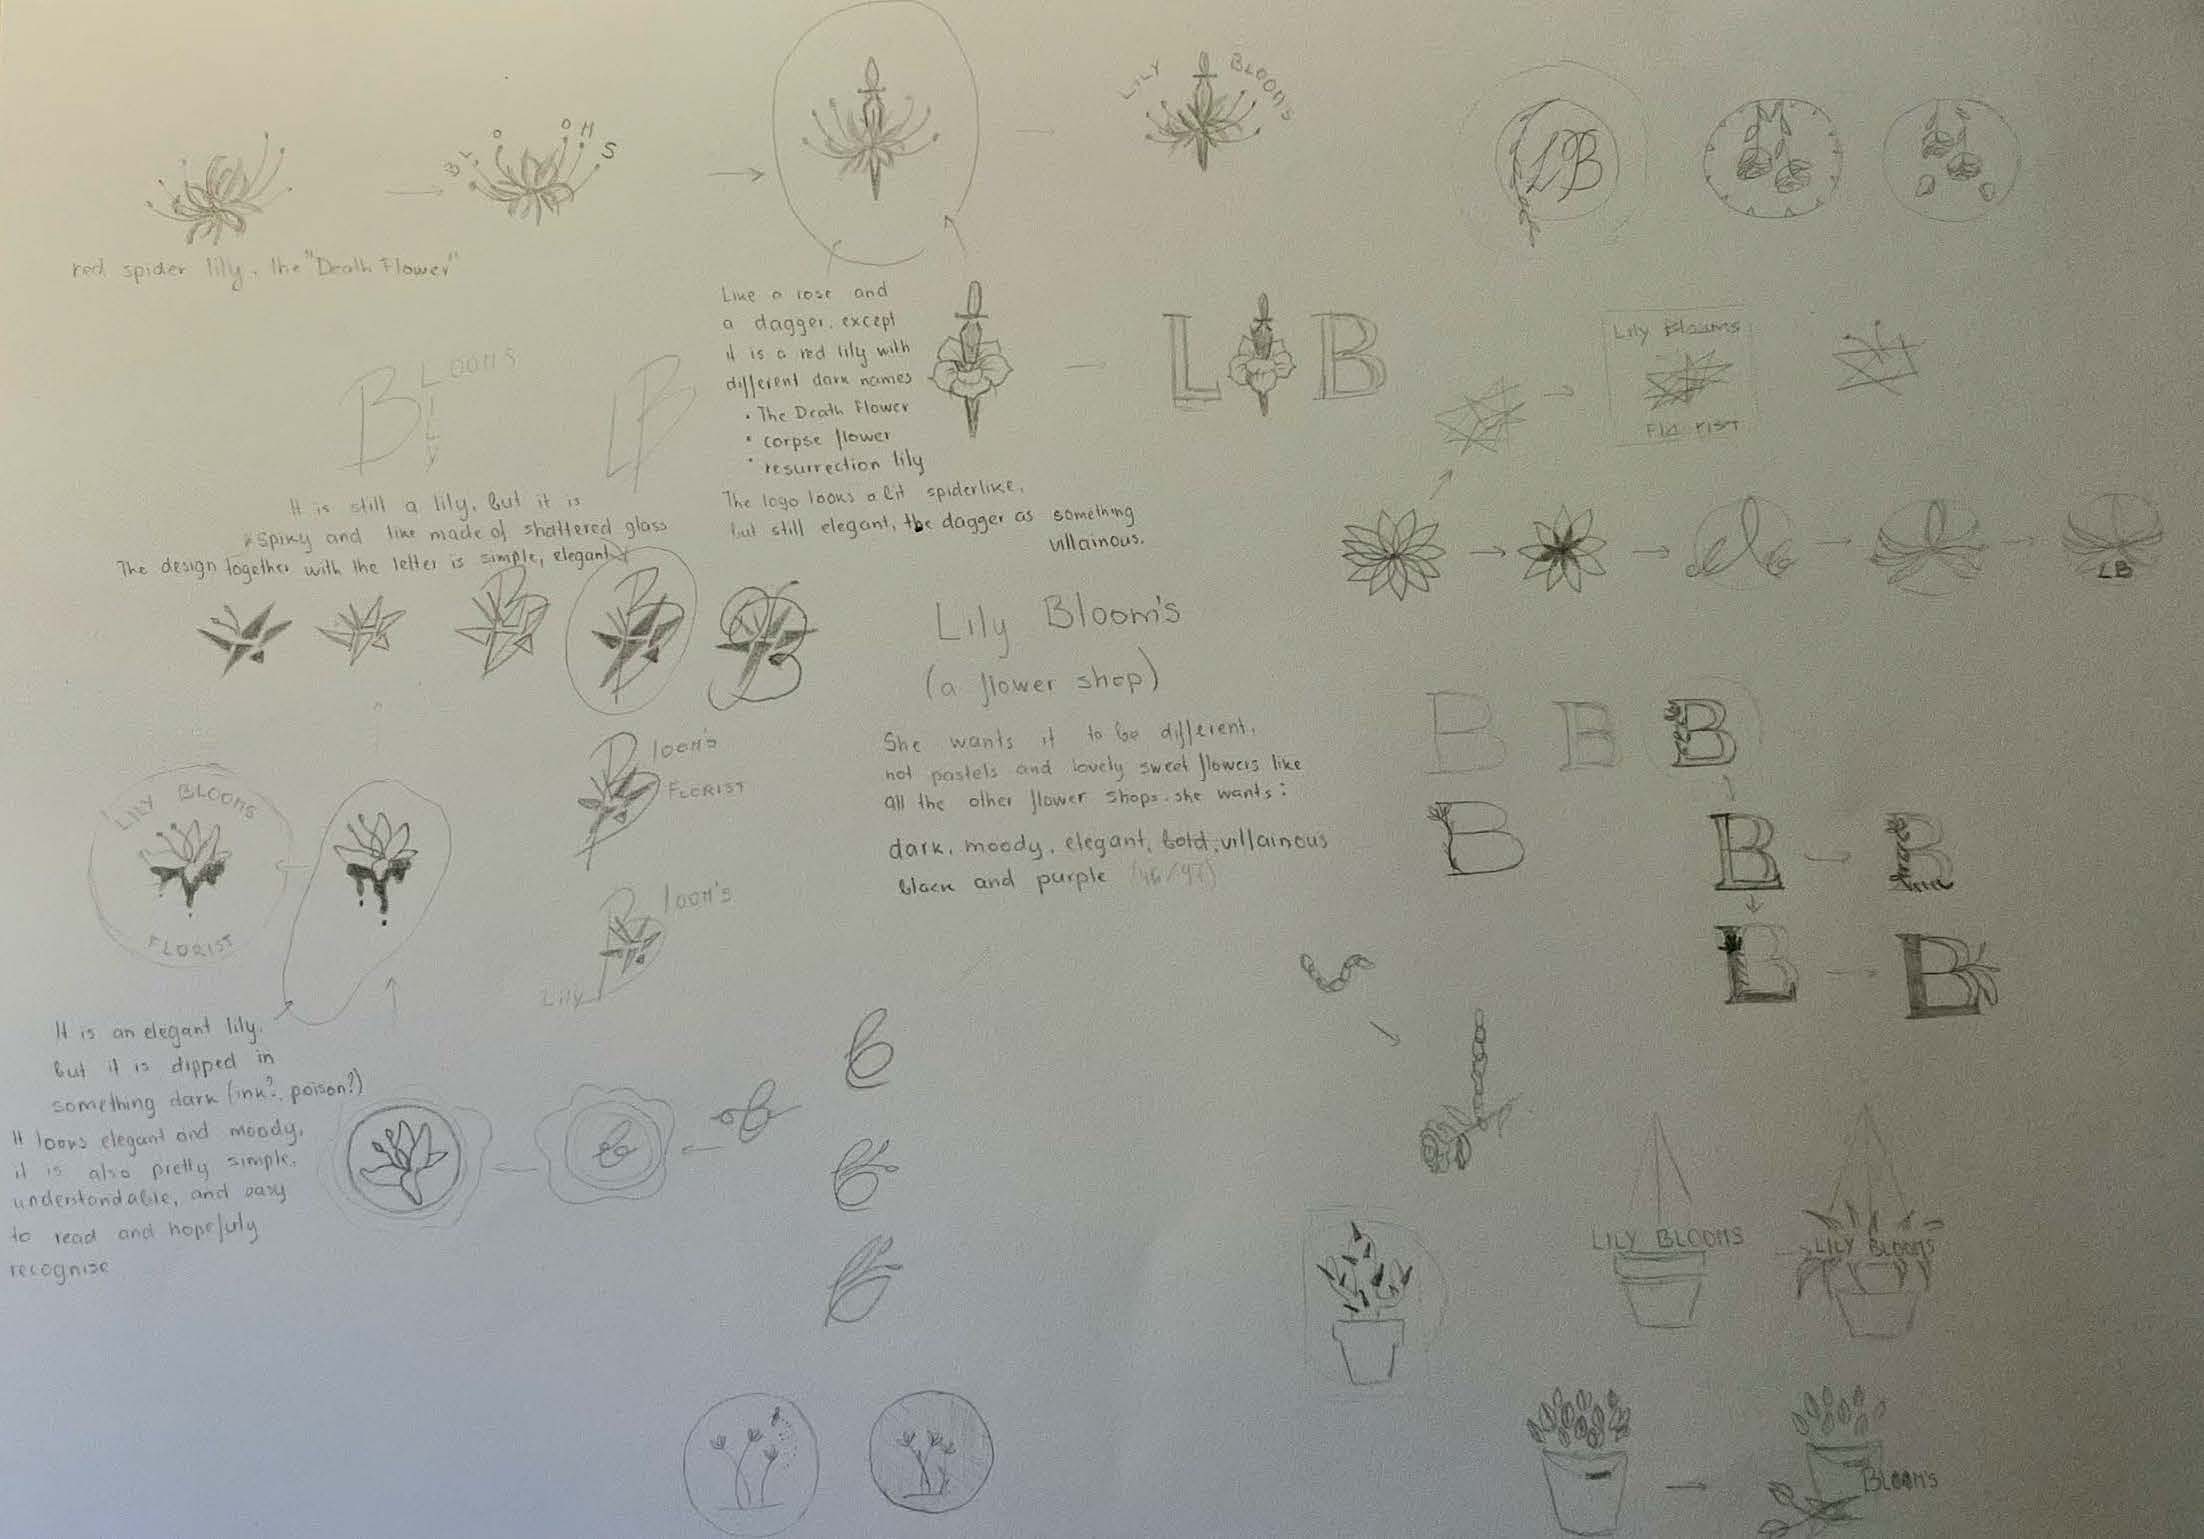 BLOOMS
LILY BLOOMS
LB
red spider lily, the "Death Flower"
Like a rose and
a dagger, except
it is a red lily with
different dark names
• The Death Flower
• corpse flower
• resurrection lily
The logo looks a bit spiderlike,
but still elegant, the dagger as something
villainous.
L B
Lily Blooms
FLORIST
Blooms
Lily
LB
It is still a lily, but it is
spiky and like made of shattered glass
The design together with the letter is simple, elegant
B
B
B
LB
Lily Bloom's
(a flower shop)
She wants it to be different,
not pastels and lovely sweet flowers like
all the other flower shops. she wants:
dark, moody, elegant, bold, villainous
black and purple
Bloom's
FLORIST
Bloom's
Lily
LILY BLOOMS
FLORIST
B B B
B B B
B B
It is an elegant lily.
but it is dipped in
something dark (ink?, poison?)
It looks elegant and moody,
it is also pretty simple,
understandable, and easy
to read and hopefuly
recognise
LILY BLOOMS
LILY BLOOMS
BLOOM'S